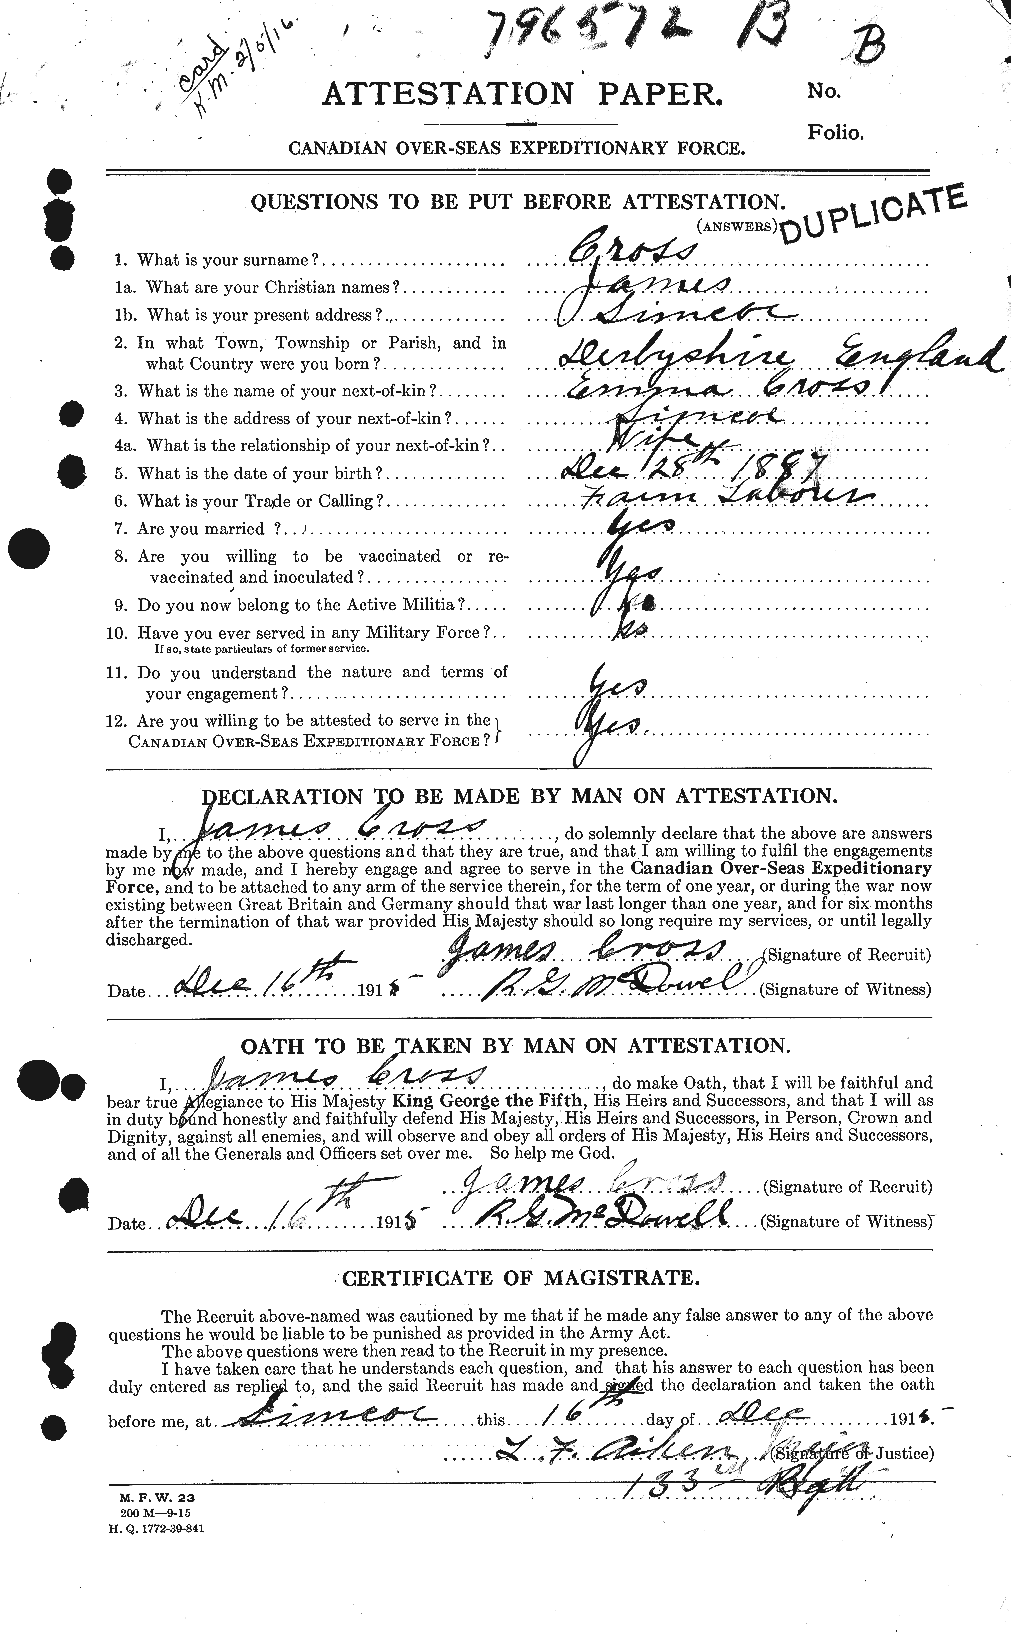 796572 B B
card
K.M. 2/5/16
ATTESTATION PAPER.
No.
Folio.
CANADIAN OVER-SEAS EXPEDITIONARY FORCE.
QUESTIONS TO BE PUT BEFORE ATTESTATION.
(ANSWERS)
DUPLICATE
1. What is your surname? Cross
1a. What are your Christian names? James
1b. What is your present address? Simcoe
2. In what Town, Township or Parish, and in
what Country were you born? Derbyshire England
3. What is the name of your next-of-kin? Emma Cross
4. What is the address of your next-of-kin? Simcoe
4a. What is the relationship of your next-of-kin? Wife
5. What is the date of your birth? Dec 28th 1887
6. What is your Trade or Calling? Farm Labourer
7. Are you married ? Yes
8. Are you willing to be vaccinated or re-
vaccinated and inoculated? Yes
9. Do you now belong to the Active Militia? No
10. Have you ever served in any Military Force? No
If so, state particulars of former service.
11. Do you understand the nature and terms of
your engagement? Yes
12. Are you willing to be attested to serve in the
CANADIAN OVER-SEAS EXPEDITIONARY FORCE? Yes.
DECLARATION TO BE MADE BY MAN ON ATTESTATION.
I, James Cross, do solemnly declare that the above are answers
made by me to the above questions and that they are true, and that I am willing to fulfil the engagements
by me now made, and I hereby engage and agree to serve in the Canadian Over-Seas Expeditionary
Force, and to be attached to any arm of the service therein, for the term of one year, or during the war now
existing between Great Britain and Germany should that war last longer than one year, and for six months
after the termination of that war provided His Majesty should so long require my services, or until legally
discharged.
James Cross (Signature of Recruit)
Date Dec 16th 1915 R.G. McDowell (Signature of Witness)
OATH TO BE TAKEN BY MAN ON ATTESTATION.
I, James Cross, do make Oath, that I will be faithful and
bear true Allegiance to His Majesty King George the Fifth, His Heirs and Successors, and that I will as
in duty bound honestly and faithfully defend His Majesty, His Heirs and Successors, in Person, Crown and
Dignity, against all enemies, and will observe and obey all orders of His Majesty, His Heirs and Successors,
and of all the Generals and Officers set over me. So help me God.
James Cross (Signature of Recruit)
Date Dec 16th 1915 R.G. McDowell (Signature of Witness)
CERTIFICATE OF MAGISTRATE.
The Recruit above-named was cautioned by me that if he made any false answer to any of the above
questions he would be liable to be punished as provided in the Army Act.
The above questions were then read to the Recruit in my presence.
I have taken care that he understands each question, and that his answer to each question has been
duly entered as replied to, and the said Recruit has made and signed the declaration and taken the oath
before me, at Simcoe this 16th day of Dec 1915.
L. F. Aiken Major (Signature of Justice)
133rd Batt
M. F. W. 23
200 M—9-15
H. Q. 1772-39-841